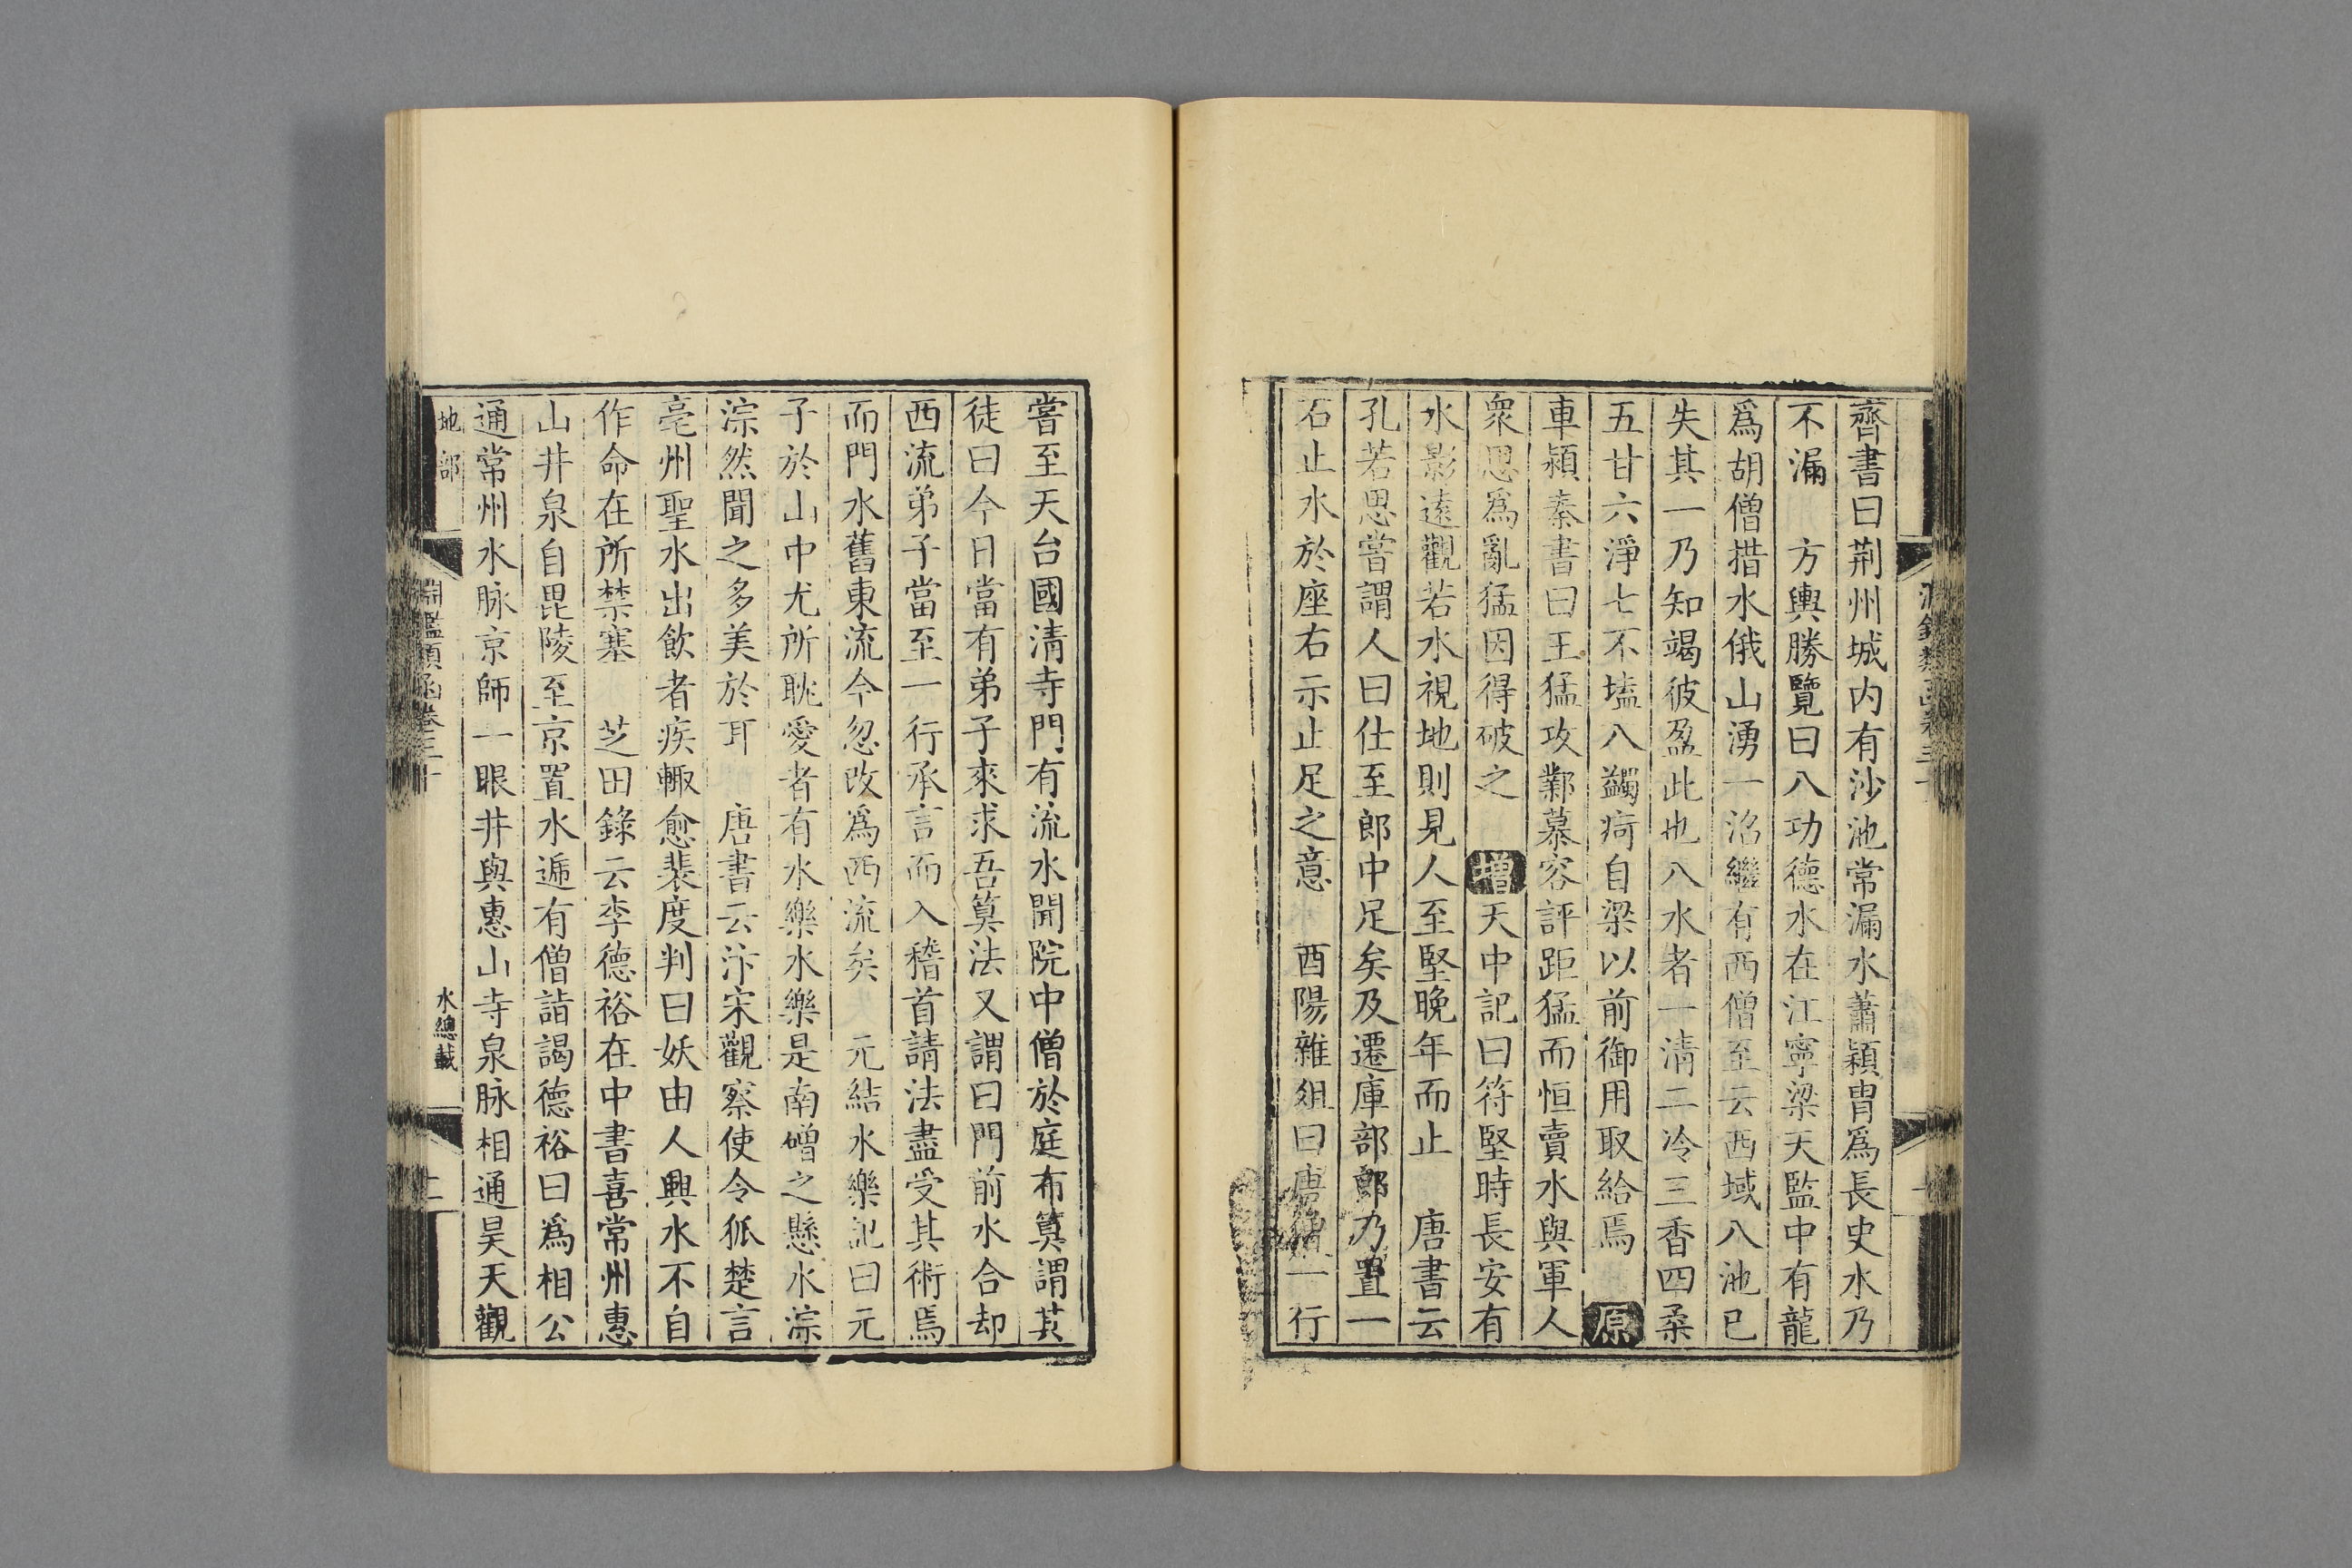 齊書曰荆州城内有沙池常漏水蕭穎胄爲長史水乃
不漏　方輿勝覽曰八功德水在江寧梁天監中有龍
爲胡僧措水俄山湧一沼繼有西僧至云西域八池已
失其一乃知竭彼盈此也八水者一清二冷三香四柔
五甘六淨七不壒八蠲疴自梁以前御用取給焉　原
車穎秦書曰王猛攻鄴慕容評距猛而恒賣水與軍人
衆思爲亂猛因得破之　增天中記曰符堅時長安有
水影遠觀若水視地則見人至堅晚年而止　唐書云
孔若思嘗謂人曰仕至郎中足矣及遷庫部郎乃置一
石止水於座右示止足之意　酉陽雜俎曰唐僧一行
嘗至天台國清寺門有流水聞院中僧於庭布筭謂其
徒曰今日當有弟子來求吾筭法又謂曰門前水合却
西流弟子當至一行承言而入稽首請法盡受其術焉
而門水舊東流今忽改爲西流矣　元結水樂記曰元
子於山中尤所耽愛者有水樂水樂是南磳之懸水淙
淙然聞之多美於耳　唐書云汴宋觀察使令狐楚言
亳州聖水出飲者疾輒愈裴度判曰妖由人興水不自
作命在所禁塞　芝田錄云李德裕在中書喜常州惠
山井泉自毘陵至京置水遞有僧詣謁德裕曰爲相公
通常州水脉京師一眼井與惠山寺泉脉相通昊天觀
地部　淵鑑類函卷三十　水總載　二